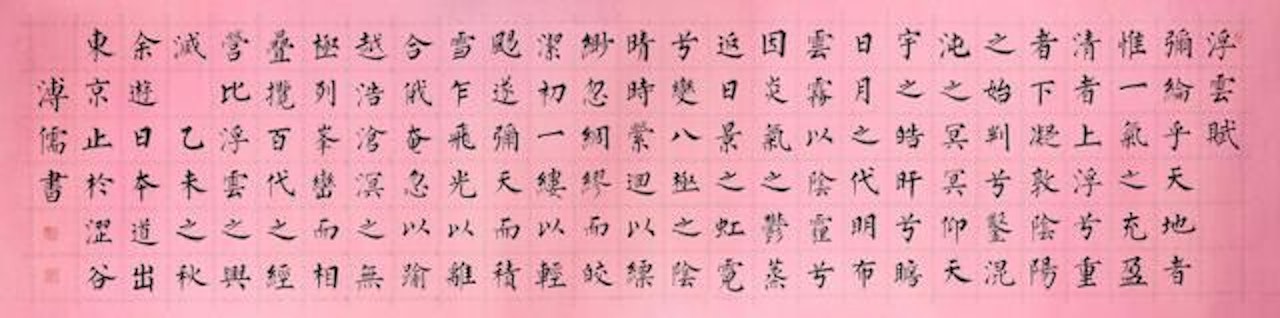 浮雲賦
彌綸乎天地者
惟一氣之充盈
清者上浮兮重
者下凝敦陰陽
之始判兮鑿混
沌之冥冥仰天
宇之皓旰兮瞻
日月之代明布
雲霧以陰靈兮
因炎氣之鬱蒸
返日景之虹霓
兮變八極之陰
晴時縈迴以縹
緲忽綢繆而皎
潔初一縷以輕
颺遂彌天而積
雪乍飛光以離
合俄奄忽以踰
越浩滄溟之無
極列峯巒而相
疊攬百代之經
營比浮雲之興
滅 乙未之秋
余遊日本道出
東京止於澀谷
溥儒書